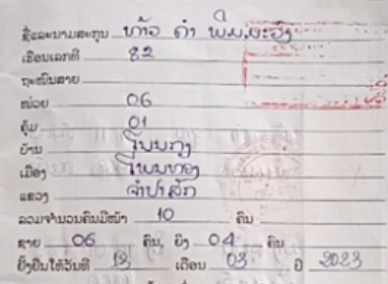 ຊື່ແລະນາມສະກຸນ ທ້າວ ຄຳ
ເຮືອນເລກທີ 22
ຖະໜົນສາຍ
ໜ່ວຍ 06
ຄຸ້ມ 01
ບ້ານ
ເມືອງ ໂພນທອງ
ແຂວງ ຈຳປາສັກ
ລວມຈຳນວນຄົນມີໜ້າ 10 ຄົນ
ຊາຍ 06 ຄົນ, ຍິງ 04 ຄົນ
ຢັ້ງຢືນໃຫ້ວັນທີ 13 ເດືອນ 03 ປີ 2023